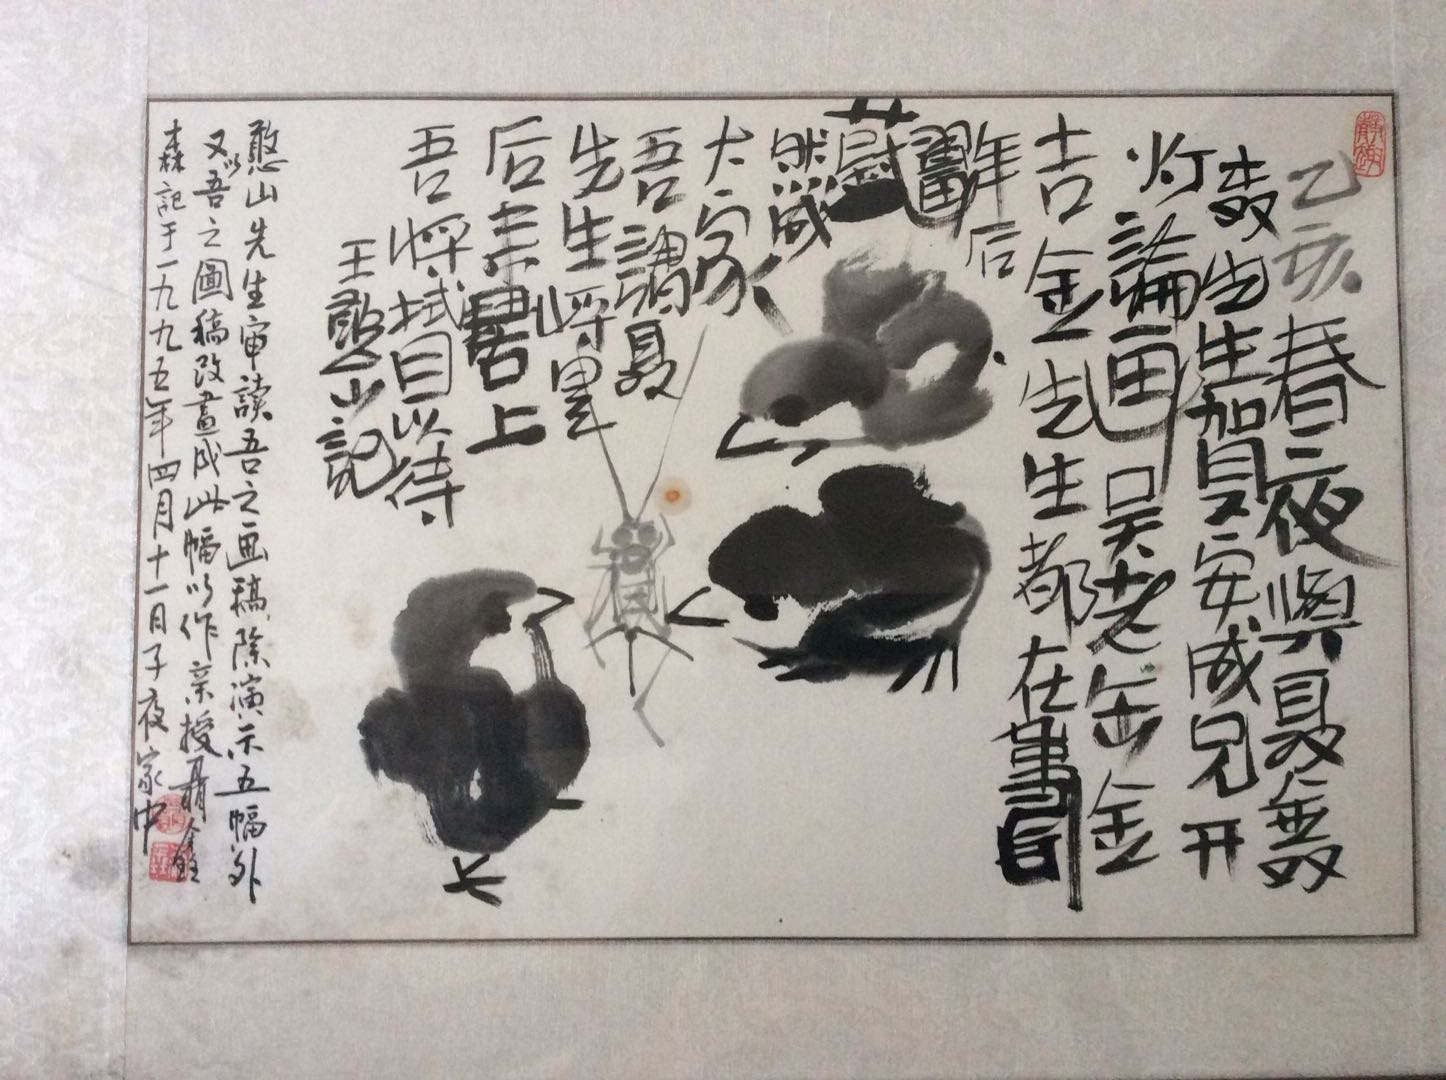 乙亥春三夜與聂鑫
森先生贺安成兄开
灯論画吴老缶金
吉金先生都在
年后
蔚
然成
大家
吾謂聂
先生将
后
上
吾将拭目以待
王憨山記
憨山先生审讀吾之画稿除演示五幅外
又以吾之圖稿改畫成此幅以作亲授聶鑫
森記于一九九五年四月十一日子夜家中